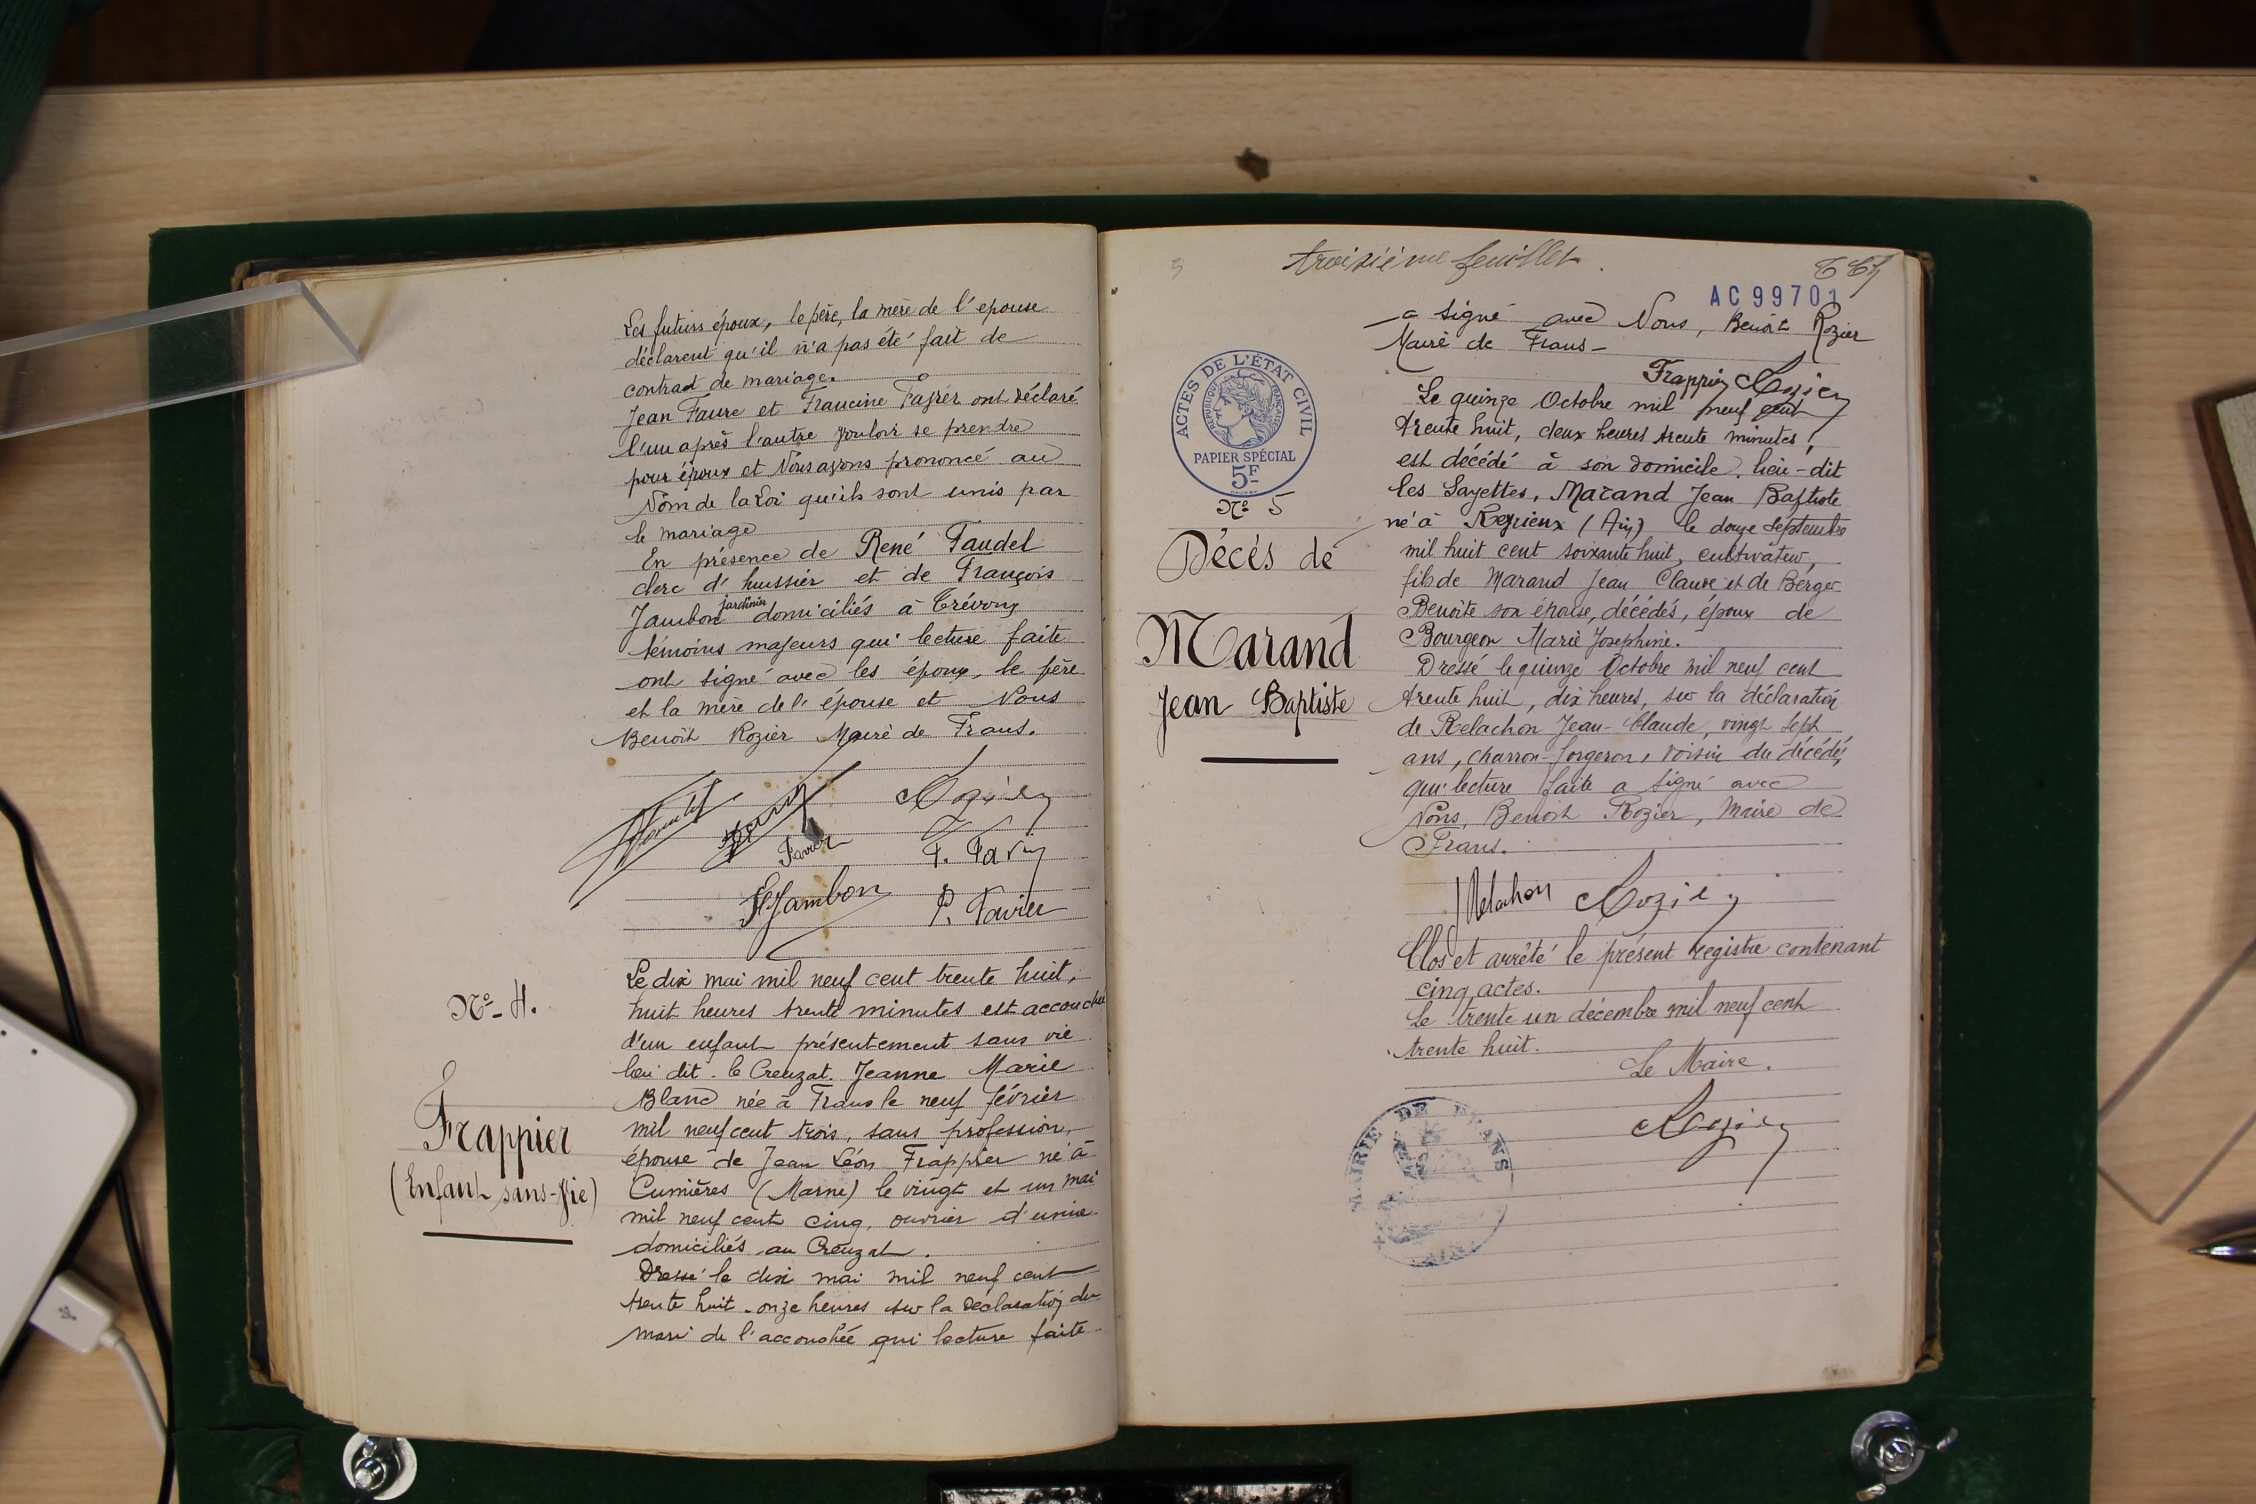 Les futurs époux, le père, la mère de l'épouse
déclarent qu'il n'a pas été fait de
contrat de mariage.
Jean Faure et Francine Favier ont déclaré
l'un après l'autre vouloir se prendre
pour époux et Nous avons prononcé au
Nom de la Loi qu'ils sont unis par
le mariage
En présence de René Faudel
clerc d'huissier et de François
Jambon jardinier domiciliés à Trévoux
témoins majeurs qui lecture faite
ont signé avec les époux, le père
et la mère de l'épouse et Nous
Benoit Rozier Maire de Frans.
Rozier
Favier
F. Favier
Jambon
P. Favier
No - 4.
Frappier
(Enfant sans-Vie)
Le dix mai mil neuf cent trente huit,
huit heures trente minutes est accouchée
d'un enfant présentement sans vie
lieu dit - le Creuzat. Jeanne Marie
Blanc née à Frans le neuf février
mil neuf cent trois, sans profession,
épouse de Jean Léon Frappier né à
Cumières (Marne) le vingt et un mai
mil neuf cent cinq, ouvrier d'usine
domiciliés au Creuzat.
Dressé le dix mai mil neuf cent
trente huit - onze heures sur la déclaration du
mari de l'accouchée qui lecture faite
3
troisième feuillet
AC 99701
a signé avec Nous, Benoit Rozier
Maire de Frans -
Frappier Rozier
ACTES DE L'ÉTAT CIVIL
RÉPUBLIQUE FRANÇAISE
PAPIER SPÉCIAL
5F
No 5
Décès de
Marand
Jean Baptiste
Le quinze Octobre mil neuf cent
trente huit, deux heures trente minutes,
est décédé à son domicile, lieu-dit
les Sayettes, Marand Jean Baptiste
né à Reyrieux (Ain) le douze septembre
mil huit cent soixante huit, cultivateur,
fils de Marand Jean Claude et de Berger
Benoîte son épouse, décédés, époux de
Bourgeon Marie Joséphine.
Dressé le quinze Octobre mil neuf cent
trente huit, dix heures, sur la déclaration
de Relachon Jean-Claude, vingt sept
ans, charron-forgeron, voisin du décédé,
qui lecture faite a signé avec
Nous, Benoit Rozier, Maire de
Frans.
Relachon Rozier
Clos et arrêté le présent registre contenant
cinq actes.
Le trente un décembre mil neuf cent
trente huit.
Le Maire.
Rozier
MAIRIE DE FRANS